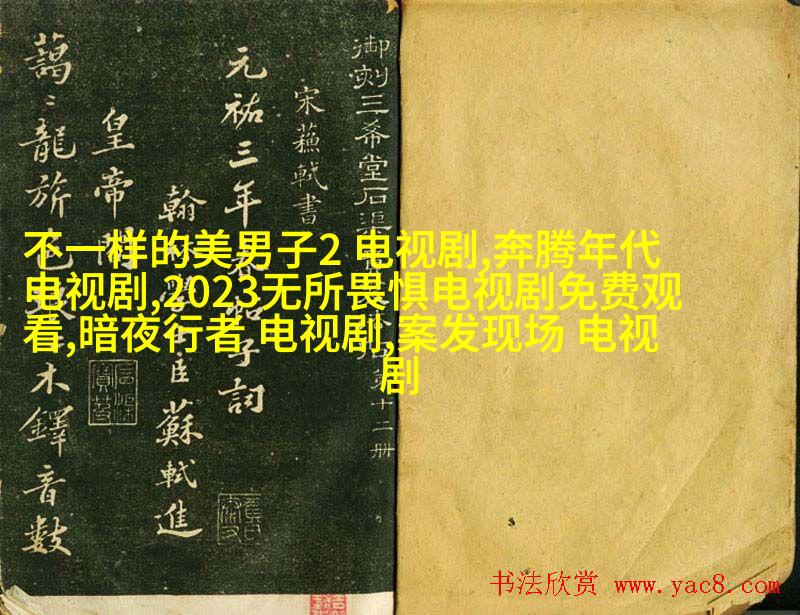 御刻三希堂石渠 第十二册
宋蘇軾書
元祐三年春帖子詞
翰林學士臣蘇軾進
皇帝閤
藹〻龍旂色 木鐸音數
不一样的美男子2 电视剧,奔腾年代
电视剧,2023无所畏惧电视剧免费观
看,暗夜行者 电视剧,案发现场 电视
剧
书法欣赏 www.yac8.com